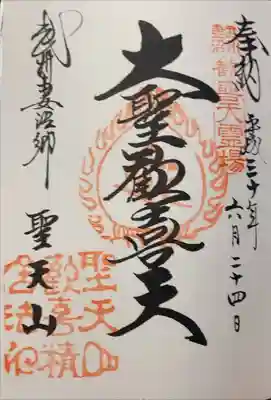 聖天霊場
奉拝 平成三十年六月二十四日
大聖歡喜天
武州妻沼郷 聖天山
聖天山
歡喜